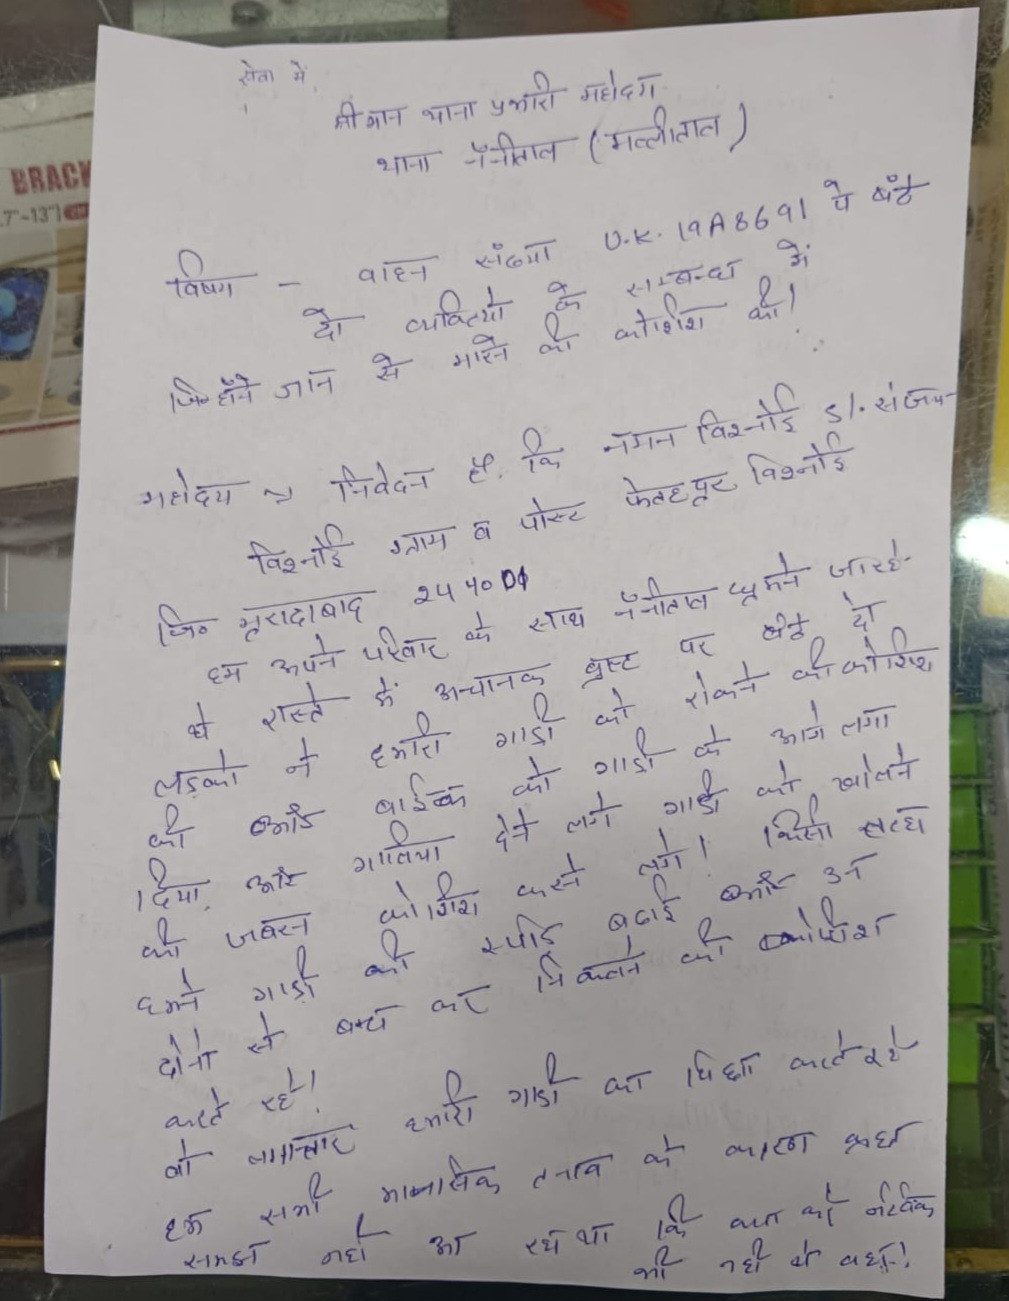 सेवा में,
श्रीमान थाना प्रभारी महोदय
थाना नैनीताल (मल्लीताल)
विषय - वाहन संख्या U.K. 19A8691 पे बैठे
दो व्यक्तियो के सम्बन्ध में
जिन्होंने जान से मारने की कोशिश की।
महोदय निवेदन है. कि नमन विश्नोई S/. संजय
विश्नोई ग्राम व पोस्ट फतेहपूर विश्नोई
जि० मूरादाबाद 244001
हम अपने परिवार के साथ नैनीताल घूमने जारहे
थे रास्ते में अचानक बुल्ट पर बैठे दो
लड़को ने हमारी गाड़ी को रोकने की कोशिश
की और बाईक को गाडी के आगे लगा
दिया, और गालिया देने लगे गाडी को खोलने
की जबरन कोशिश करने लगे। किसी तरह
हमने गाडी की स्पीड बढाई और उन
दोनो से बच कर निकलने की कोशिश
करते रहे।
वो लगातार हमारी गाडी का पिछा करते रहे
हम सभी मानसिक तनाव के कारण कुछ
समझ नही आ रहा था कि क्या करे नेटवर्क
भी नही थे वहा।
BRACK
7"-137